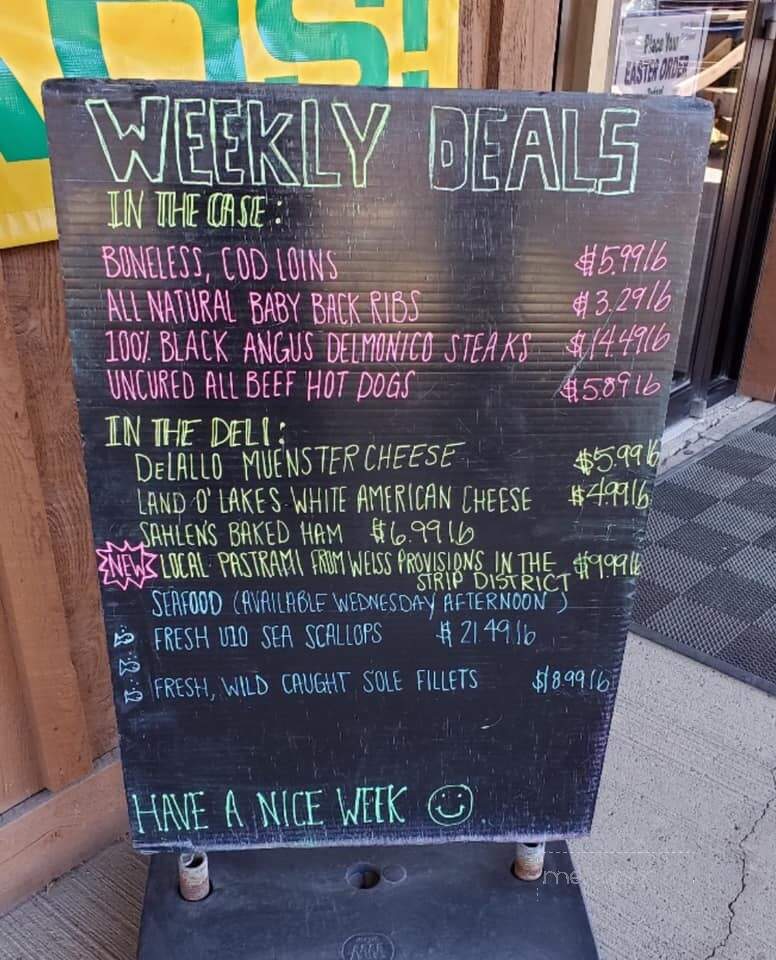 Place Your
EASTER ORDER
WEEKLY DEALS
IN THE CASE:
BONELESS, COD LOINS $5.99lb
ALL NATURAL BABY BACK RIBS $3.29lb
100% BLACK ANGUS DELMONICO STEAKS $14.49lb
UNCURED ALL BEEF HOT DOGS $5.89lb
IN THE DELI:
DELALLO MUENSTER CHEESE $5.99lb
LAND O'LAKES WHITE AMERICAN CHEESE $4.99lb
SAHLEN'S BAKED HAM $6.99lb
NEW LOCAL PASTRAMI FROM WEISS PROVISIONS IN THE $9.99lb
STRIP DISTRICT
SEAFOOD (AVAILABLE WEDNESDAY AFTERNOON)
FRESH U10 SEA SCALLOPS $21.49lb
FRESH, WILD CAUGHT SOLE FILLETS $18.99lb
HAVE A NICE WEEK